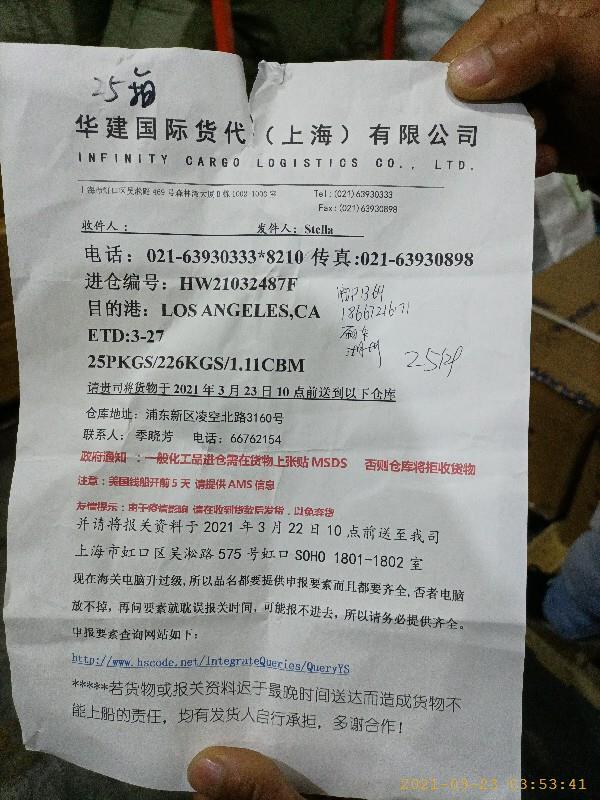 25箱
华建国际货代（上海）有限公司
INFINITY CARGO LOGISTICS CO., LTD.
Tel:(021)63930333
Fax:(021)63930898
收件人： 发件人：Stella
电话：021-63930333*8210 传真:021-63930898
进仓编号：HW21032487F
目的港：LOS ANGELES,CA
ETD:3-27
25PKGS/226KGS/1.11CBM
请贵司将货物于2021年3月23日10点前送到以下仓库
仓库地址：浦东新区凌空北路3160号
联系人：季晓芳 电话：66762154
政府通知：一般化工品进仓需在货物上张贴MSDS 否则仓库将拒收货物
注意：美国线船开前5天 请提供AMS信息
友情提示：由于疫情影响 请在收到货款后发货，以免弃货
并请将报关资料于2021年3月22日10点前送至我司
上海市虹口区吴淞路575号虹口SOHO 1801-1802室
现在海关电脑升过级,所以品名都要提供申报要素而且都要齐全,否者电脑
放不掉，再问要素就耽误报关时间，可能报不进去，所以请务必提供齐全。
申报要素查询网站如下：
http://www.hscode.net/IntegrateQueries/QueryYS
*****若货物或报关资料迟于最晚时间送达而造成货物不
能上船的责任，均有发货人自行承担，多谢合作！
2021-03-23 03:53:41